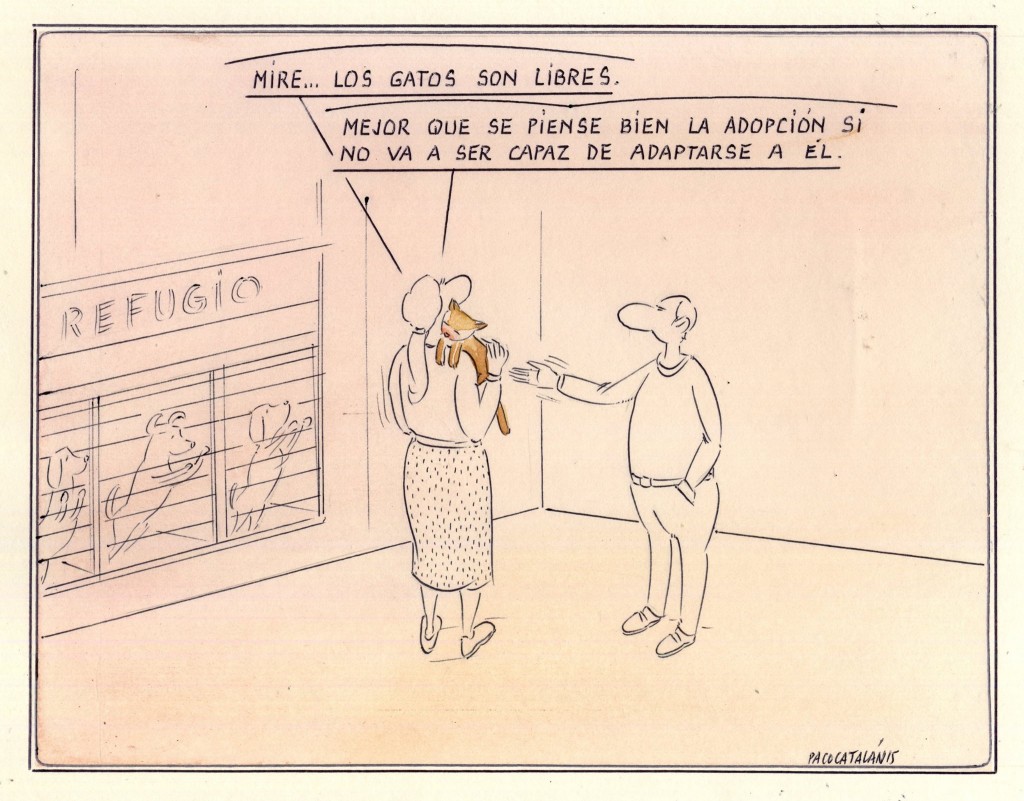 MIRE... LOS GATOS SON LIBRES.
MEJOR QUE SE PIENSE BIEN LA ADOPCIÓN SI
NO VA A SER CAPAZ DE ADAPTARSE A ÉL.
REFUGIO
PACOCATALÁN15